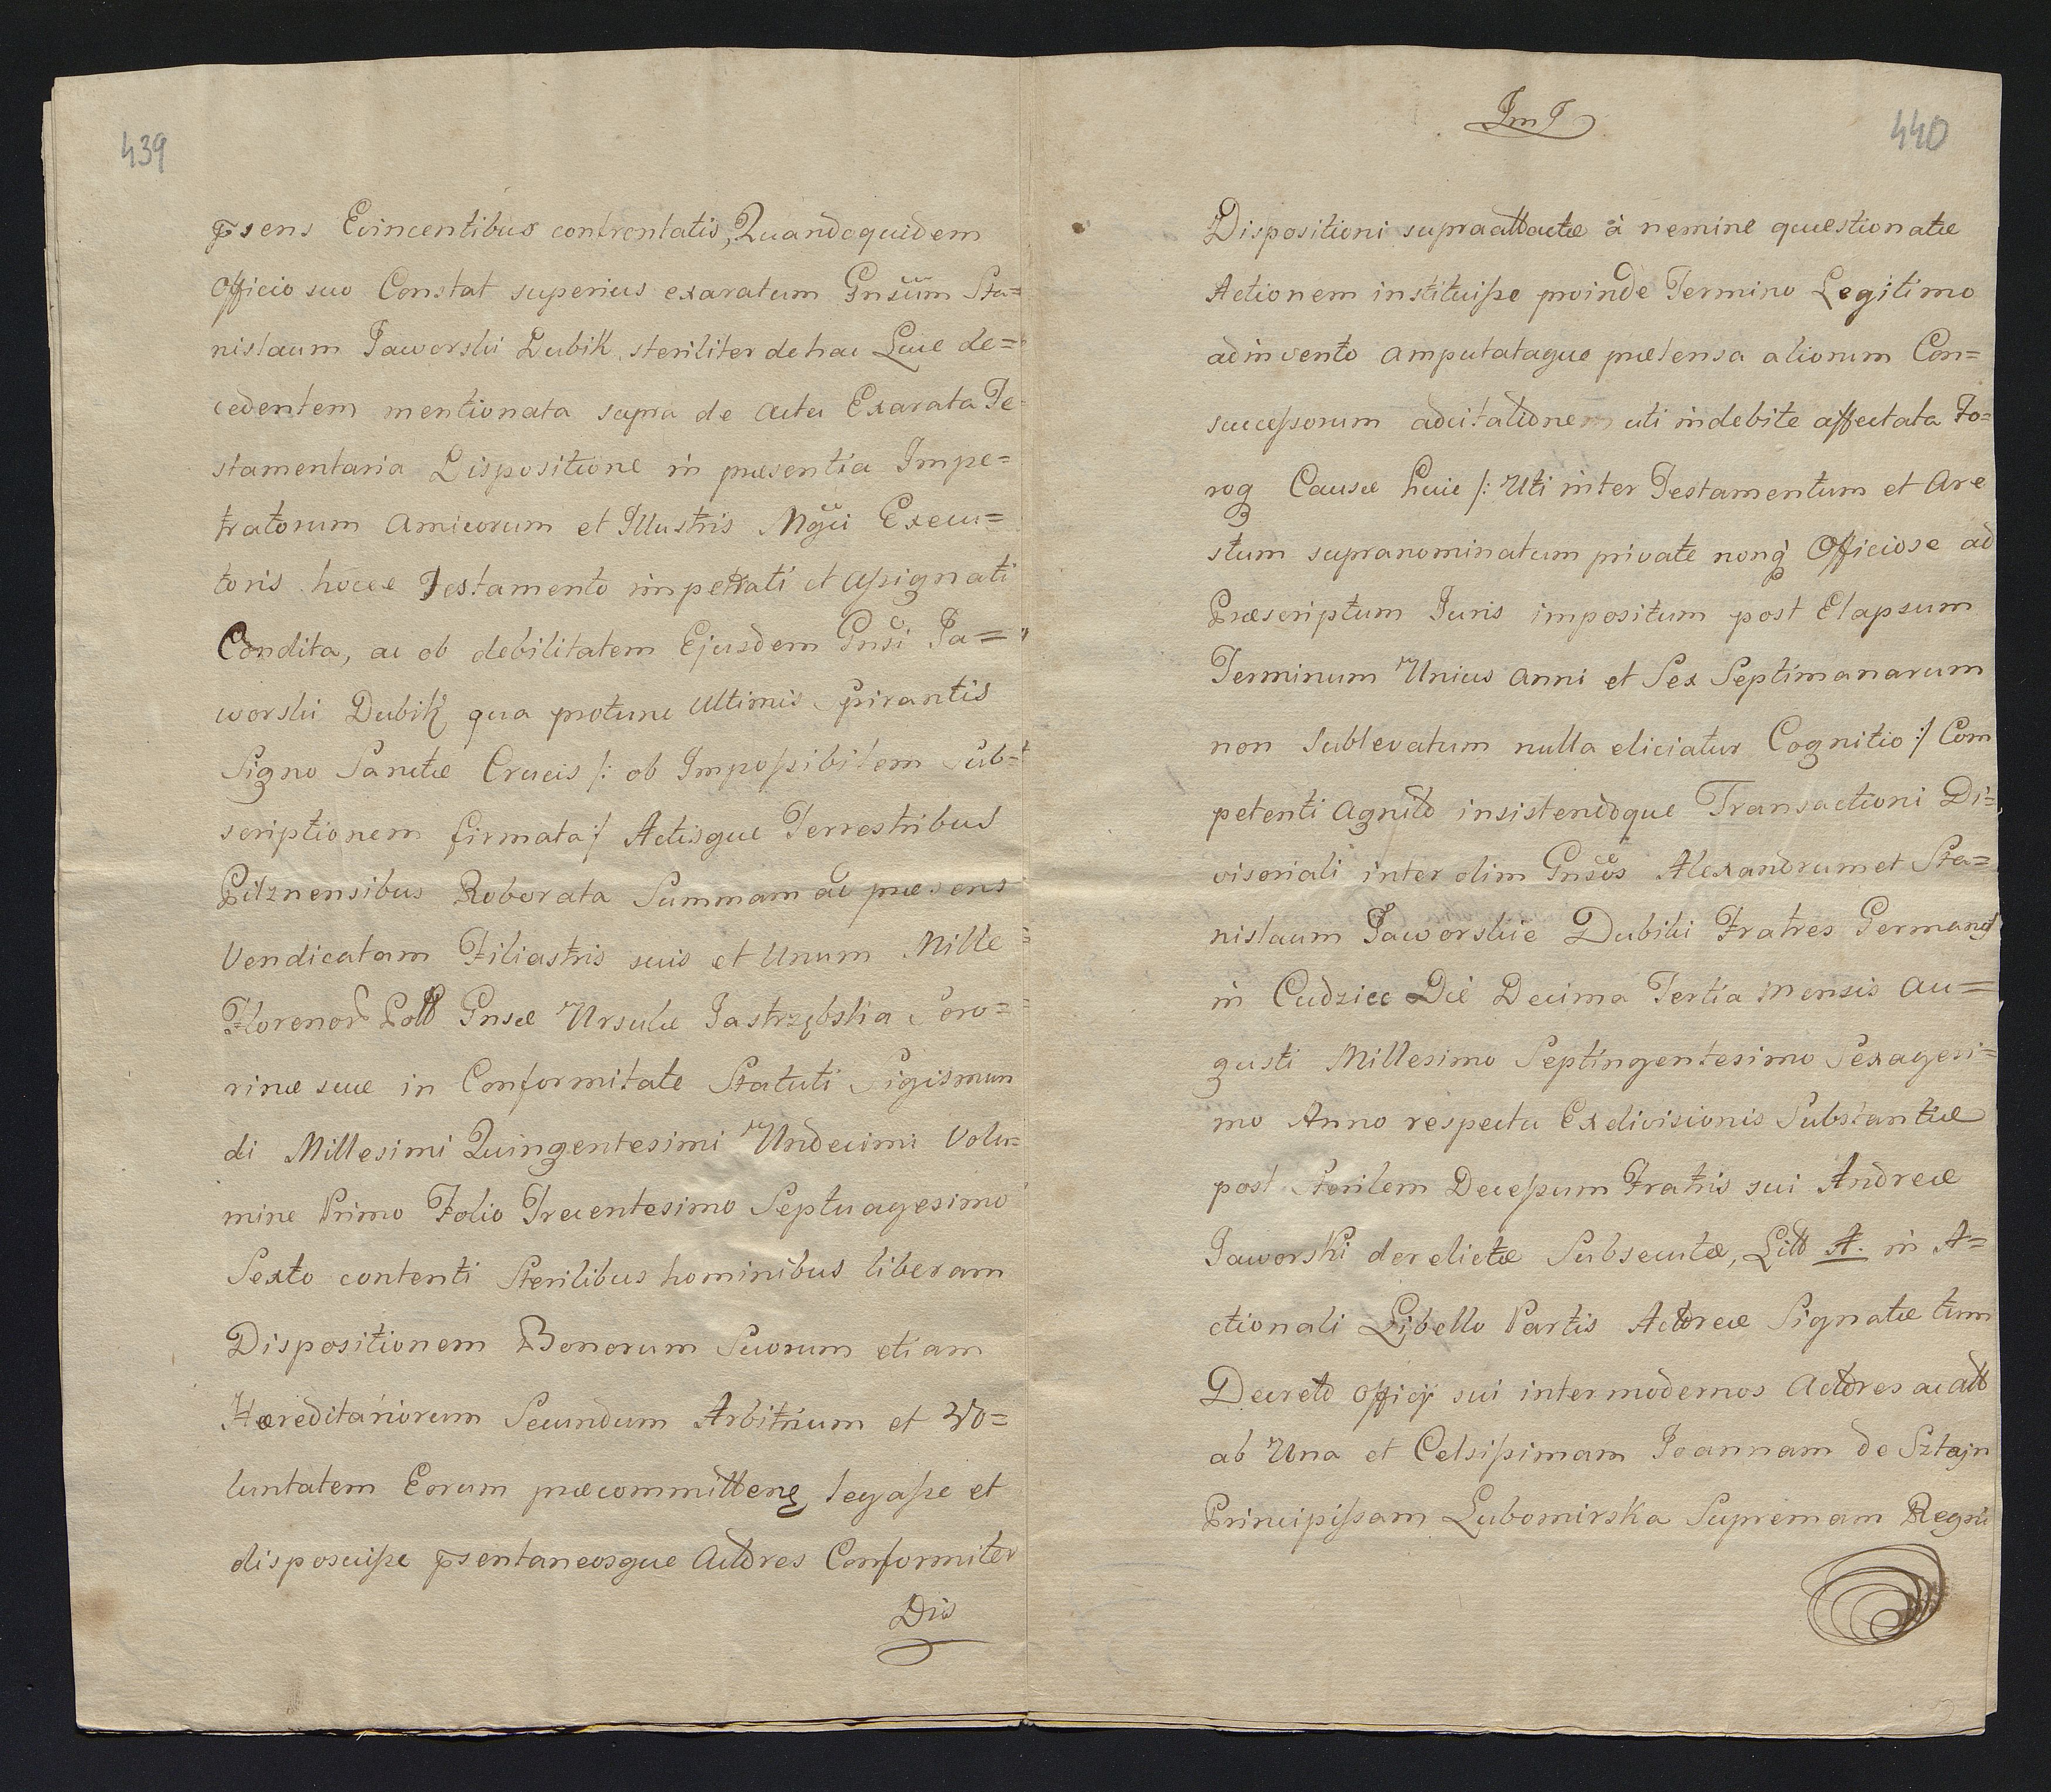 439
psens Evincentibus confrontatis, Quandoquidem
Officio suo Constat superius exaratum Gnsum Sta=
nislaum Jaworski Dubik steriliter de hac Luce de=
cedentem mentionata supra de actu Exarata Te
stamentaria Dispositione in præsentia Impe=
tratorum amicorum et Illustris Mgci Execu=
toris hocce Testamento impetrati et assignati
Condita, ac ob debilitatem Ejusdem Gnsi Ja=
worski Dubik qua protunc ultimis spirantis
Signo Sanctæ Crucis /: ob Impossibilem Sub=
scriptionem firmata :/ Actisque Terrestribus
Pilznensibus Roborata Summam ad præsens
Vendicatam Filiastris suis et Unum Mille
Florenor Poll Gnsæ Ursulæ Jastrzębska Soro=
rinæ suæ in Conformitate Statuti Sigismun
di Millesimi Quingentesimi Undecimi Volu=
mine Primo Folio Trecentesimo Septuagesimo
Sexto contenti Sterilibus hominibus liberam
Dispositionem Bonorum Suorum etiam
Hæreditariorum Secundum Arbitrium et Vo=
luntatem Eorum præcommitten legasse et
disposuisse psentaneosque Actores Conformiter
Dis
JmJ
440
Dispositioni supraattactæ à nemine quæstionatæ
Actionem instituisse proinde Termino Legitimo
adinvento amputataque prætensa aliorum Con=
successorum adcitationem uti indebite affectata Fo=
roq Causæ huic /: Uti inter Testamentum et are
stum supranominatum private nonq Officiose ad
Præscriptum Juris impositum post Elapsum
Terminum Unius anni et Sex Septimanarum
non Sublevatum nulla eliciatur Cognitio :/ Com
petenti agnito insistendoque Transactioni Di=
visoriali inter olim Gnsos Alexandrum et Sta=
nislaum Jaworskie Dubiki Fratres Germanos
in Cudzice Die Decima Tertia mensis au=
gusti Millesimo Septingentesimo Sexagesi=
mo Anno respectu Exdivisionis Substantiæ
post Sterilem Decessum Fratris sui Andreæ
Jaworski derelictæ Subsecutæ, Litt A. in A=
ctionali Libello Partis Actoreæ Signatæ tum
Decreto officij sui inter modernos actores ac att
ab Una et Celsissimam Joannam de Sztajn
Principissam Lubomirska Supremam Regni